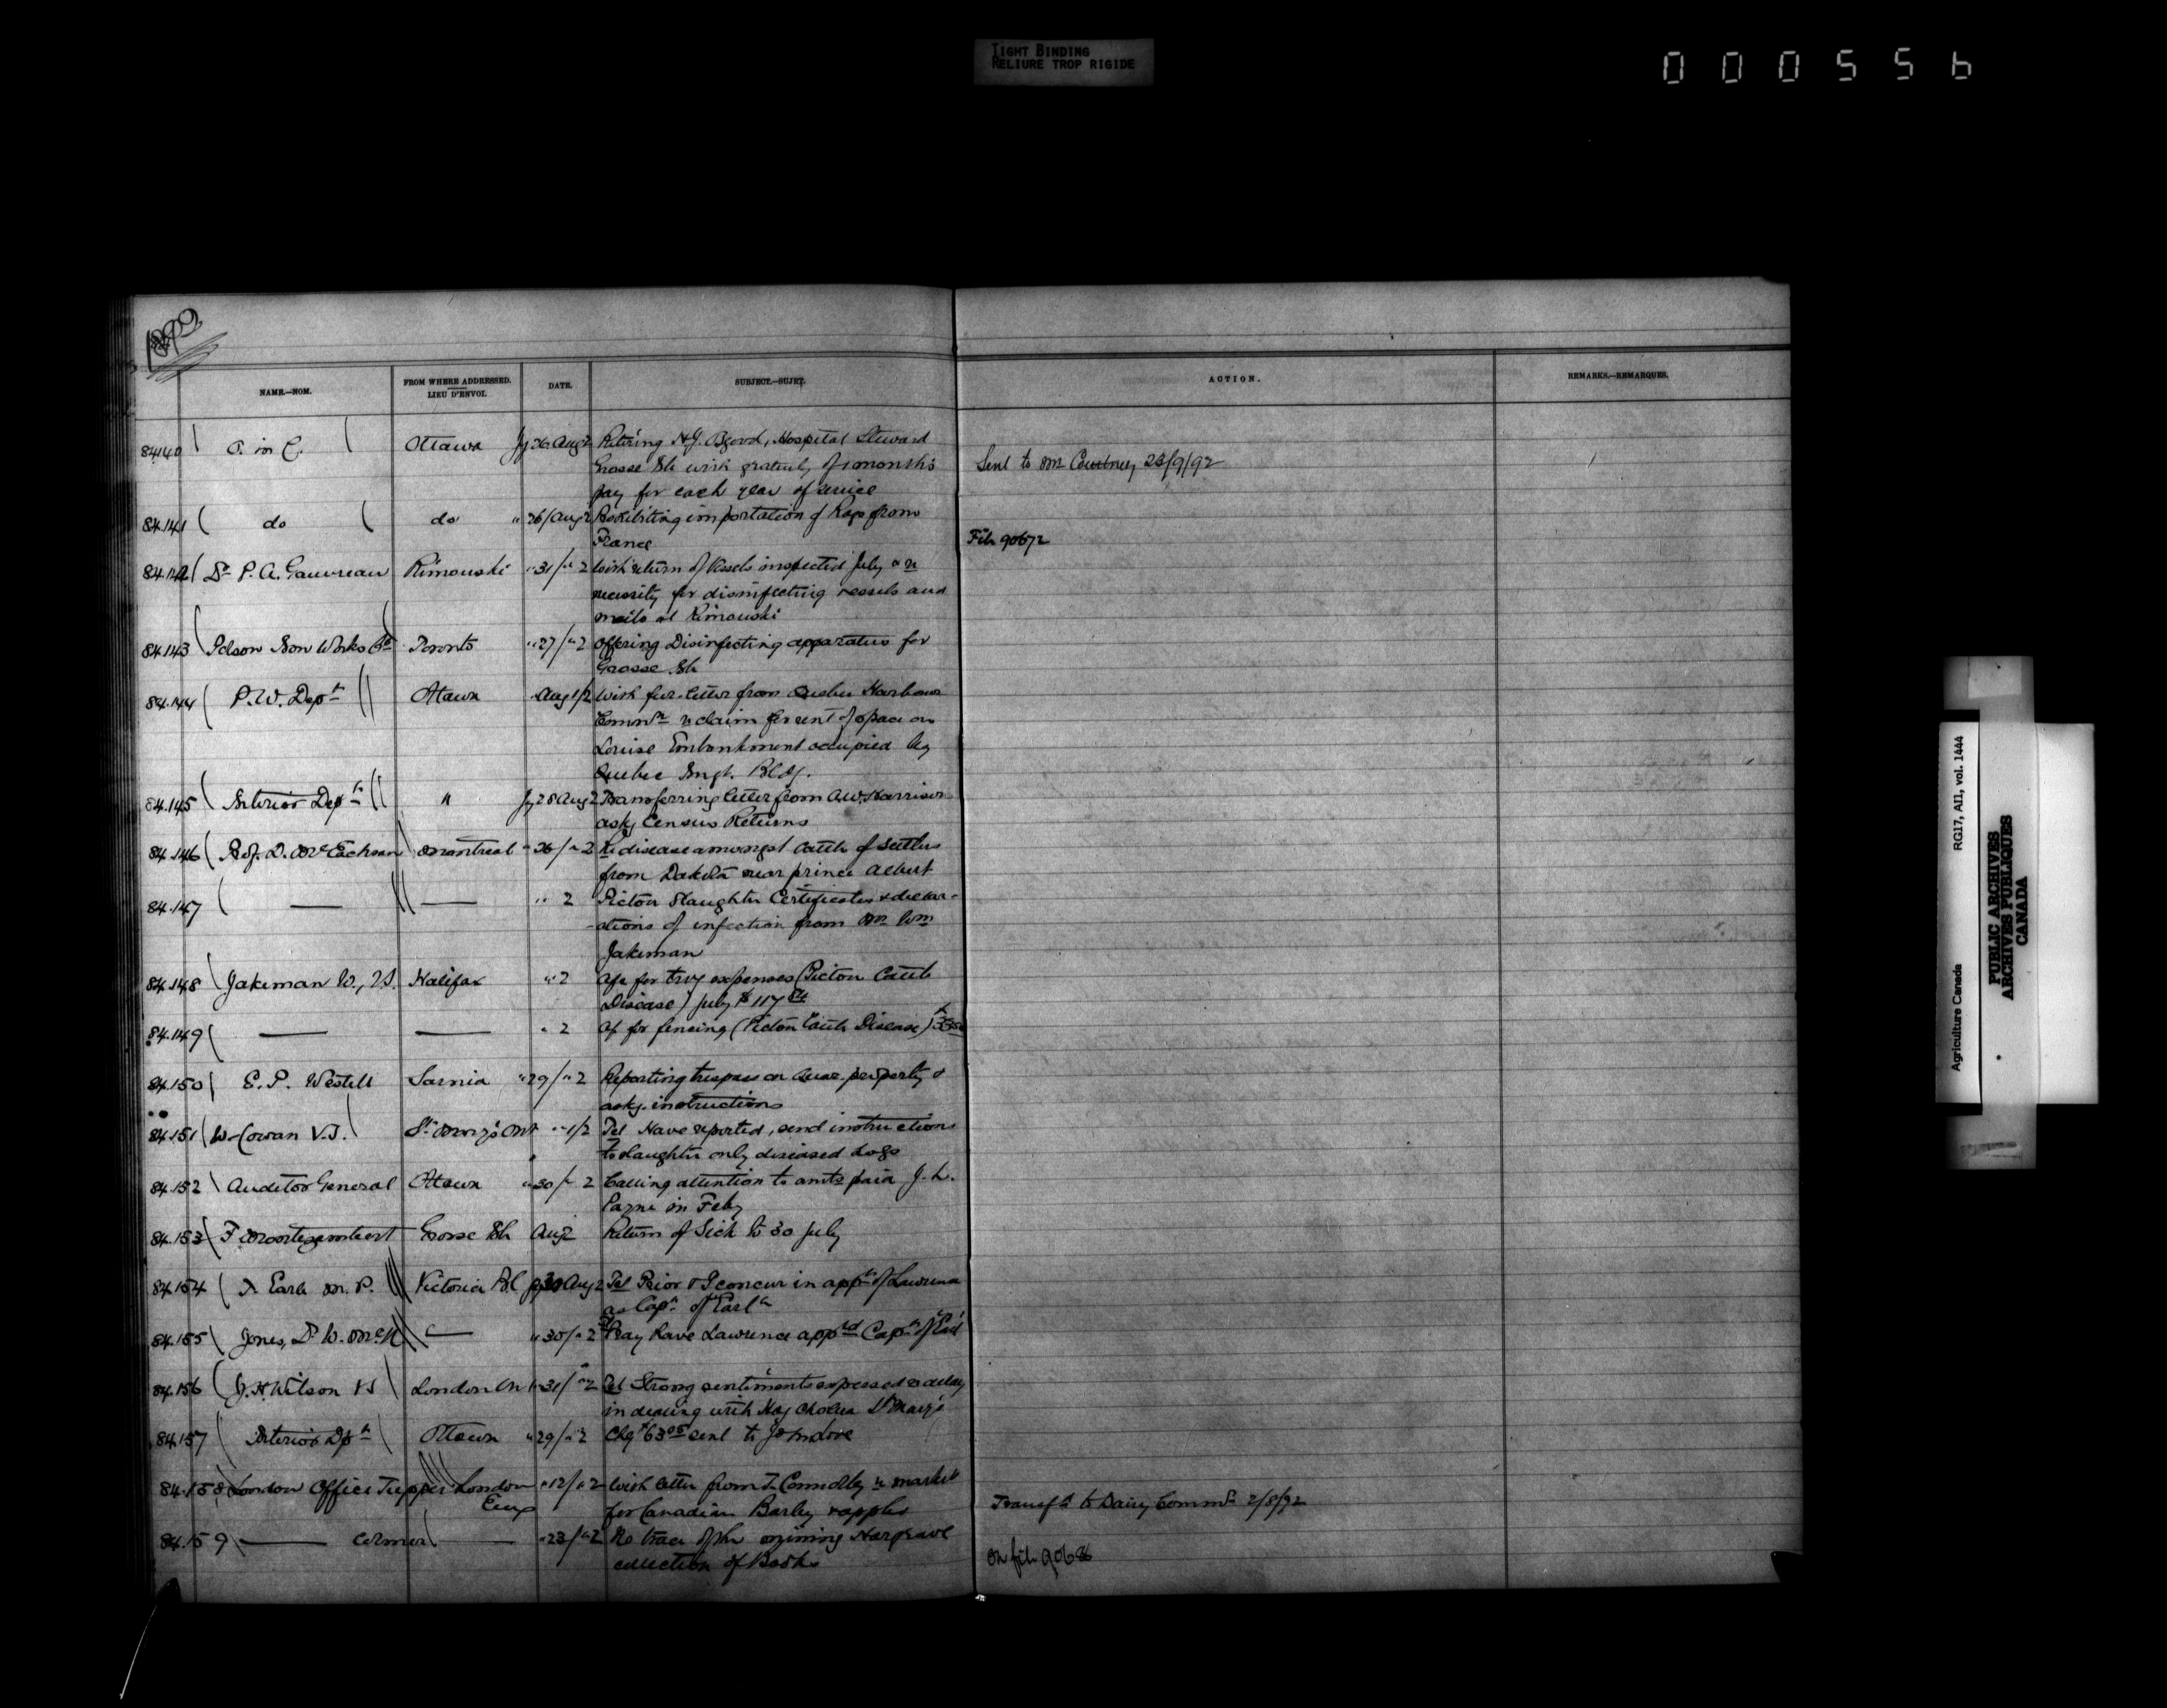 TIGHT BINDING
RELIURE TROP RIGIDE
000556
1892
NAME.—NOM.
FROM WHERE ADDRESSED.
LIEU D'ENVOI.
DATE.
SUBJECT.—SUJET.
ACTION.
REMARKS.—REMARQUES.
84140 O. in C. Ottawa Jy 26 Aug 2 Retiring H.J. Hospital Steward
Grosse Isle with gratuity of 1 month's
Sent to Mr Courtney 23/9/92
pay for each year of service
84.141 do do " 26/Aug 2 Prohibiting importation of Rags from
France
File 90672
84.142 Dr P. A. Gauvreau Rimouski " 31/" 2 With return of Vessels inspected July & re
necessity for disinfecting vessels and
mails at Rimouski
84.143 Polson Iron Works Co Toronto " 27/" 2 Offering Disinfecting apparatus for
Grosse Isle
84.144 P. W. Dept Ottawa Aug 1/2 With fur. letter from Quebec Harbour
Commrs re claim for rent of space on
Louise Embankment occupied by
Quebec Imgt. Bldg.
84.145 Interior Dept " Jy 28 Aug 2 Transferring letter from A.W. Harrison
askg Census Returns
84.146 Prof. D. McEachran Montreal " 26/" 2 Re disease amongst cattle of settlers
from Dakota near prince Albert
84.147 — — " 2 Pictou Slaughter Certificates & declar-
-ations of infection from Mr Wm
Jakeman
84.148 Jakeman W., V.S. Halifax " 2 a/c for trvg expenses (Pictou Cattle
Disease) July $117
84.149 — — " 2 a/c for fencing (Pictou Cattle Disease)
84.150 E. P. Westell Sarnia " 29/" 2 Reporting trespass on Quar. property &
askg. instructions
84.151 W. Cowan V.S. St. Mary's Ont " 1/2 Tel Have reported, send instructions
to slaughter only diseased hogs
84.152 Auditor General Ottawa " 30/" 2 Calling attention to amts paid J. L.
Payne in Feby
84.153 F Montizambert Grosse Isle Aug 2 Return of Sick to 30 July
84.154 T. Earle M. P. Victoria B.C. Jy 30 Aug 2 Tel Prior & I concur in appt of Lawrence
as Capt of "Earl"
84.155 Jones, Dr W. McN — " 30/" 2 Pray have Lawrence appd Capt of "Earl"
84.156 J. H. Wilson VS London Ont " 31/" 2 Tel Strong sentiments expressed re delay
in dealing with Hog Cholera St Mary's
84.157 Interior Dpt Ottawa " 29/" 2 Chq $63 sent to
84.158 London Office Tupper London " 12/" 2 With letter from T. Connolly re market
Eng
for Canadian Barley & apples
Transfd to Dairy Commr 2/8/92
84.159 — Colmer — " 23/" 2 No trace of the missing Hargrave
collection of Books
On file 90686
Agriculture Canada RG17, AI1, vol. 1444
PUBLIC ARCHIVES
ARCHIVES PUBLIQUES
CANADA